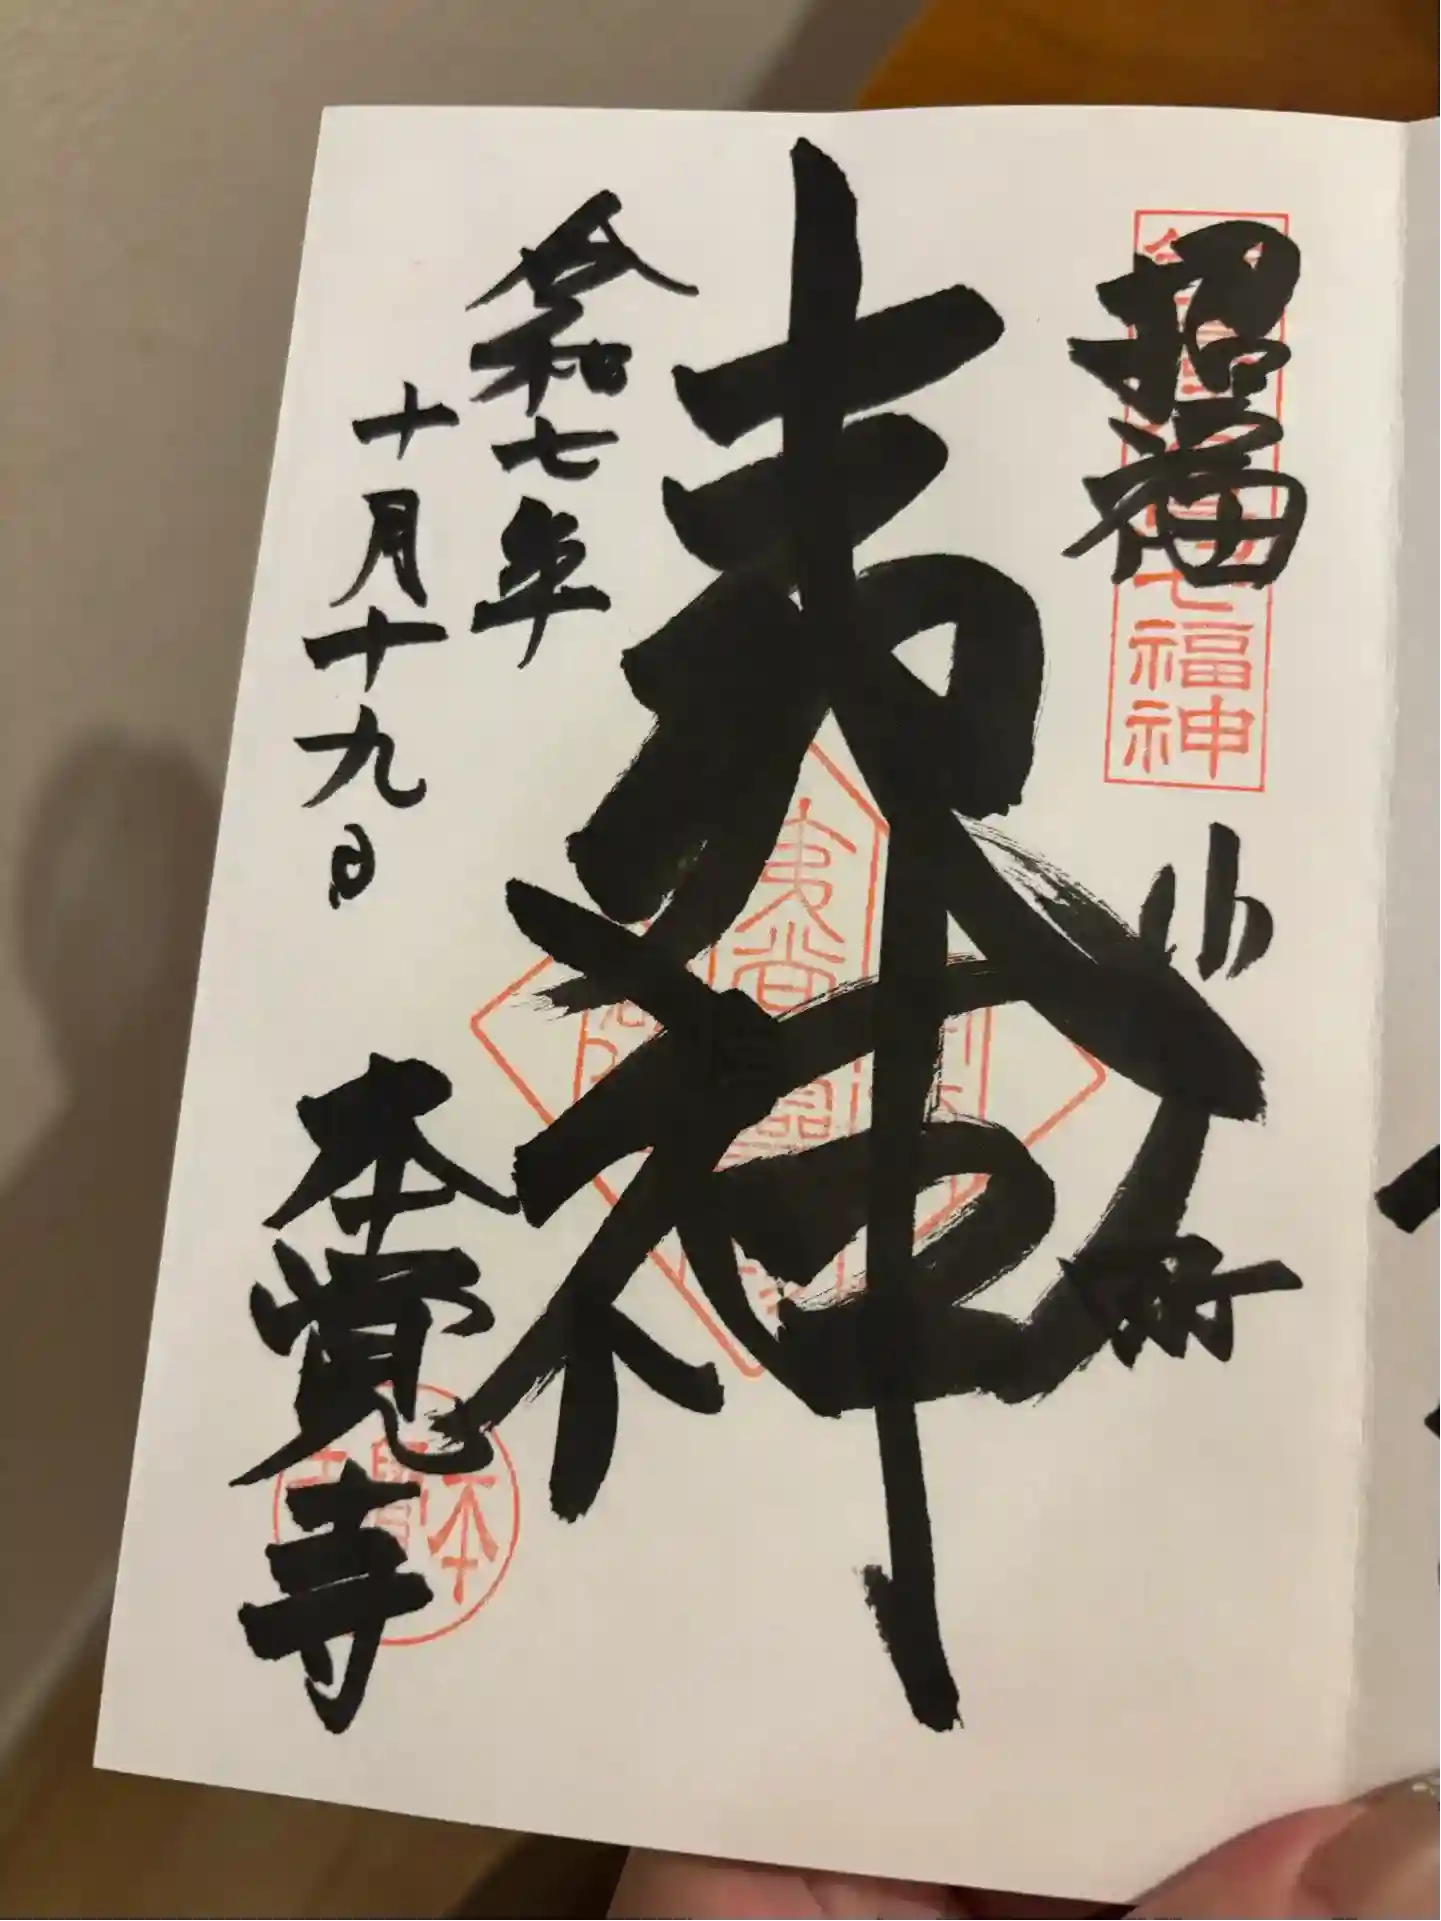 招福
七福神
夷神
夷
令和七年
十月十九日
本覚寺
本